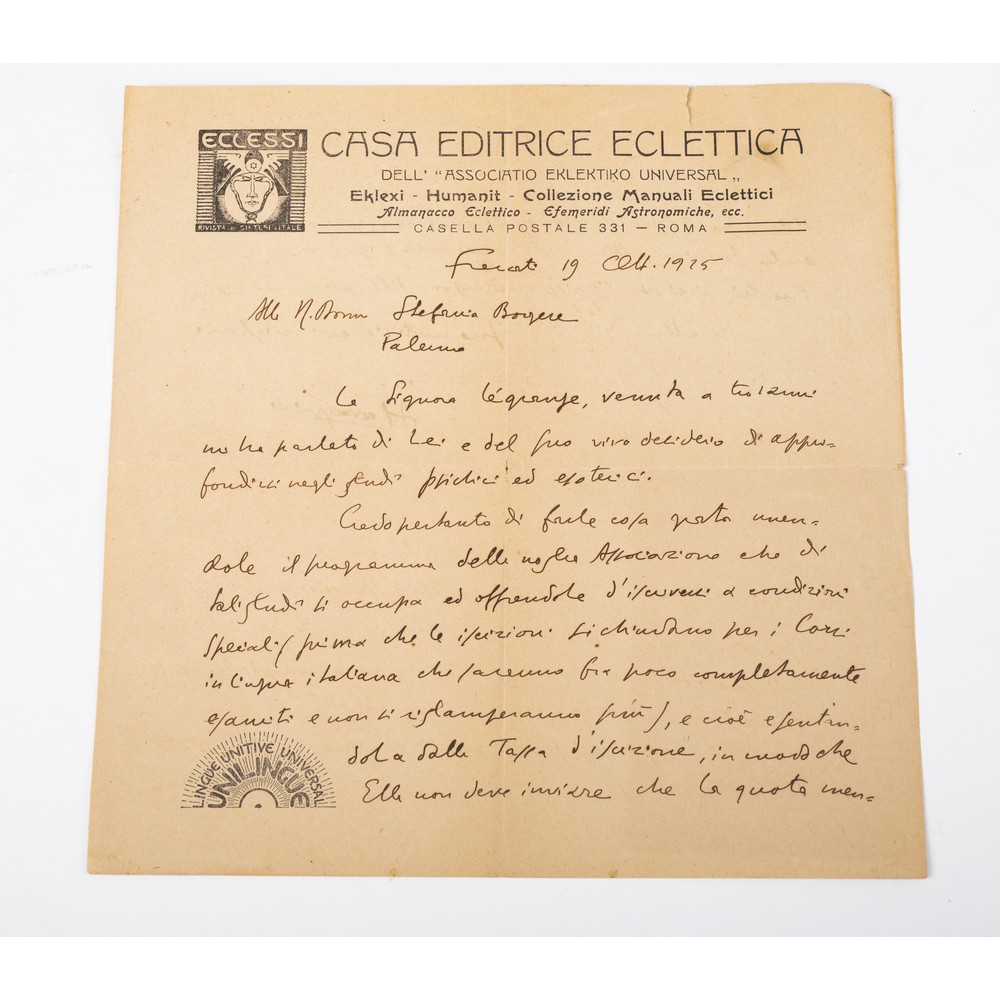 ECLESSI
RIVISTA DI SINTESI VITALE
CASA EDITRICE ECLETTICA
DELL' "ASSOCIATIO EKLEKTIKO UNIVERSAL„
Eklexi - Humanit - Collezione Manuali Eclettici
Almanacco Eclettico - Efemeridi Astronomiche, ecc.
CASELLA POSTALE 331 — ROMA
19 Ott. 1925
Alla N. Donna Stefania
Palermo
La Signora Légrange, venuta a trovarmi
mi ha parlato di Lei e del suo vivo desiderio di appro-
fondirsi negli studi psichici ed esoterici.
Credo pertanto di farle cosa grata invian-
dole il programma della nostra Associazione che di
tali studi si occupa ed offrendole d'iscriversi a condizioni
speciali (prima che le iscrizioni si chiudano per i Corsi
in lingua italiana che saranno fra poco completamente
esauriti e non si ristamperanno più), e cioè esentan-
dola dalla Tassa d'iscrizione, in modo che
Ella non deve inviare che la quota men-
LINGUE UNITIVE UNIVERSAL
UNILINGUE